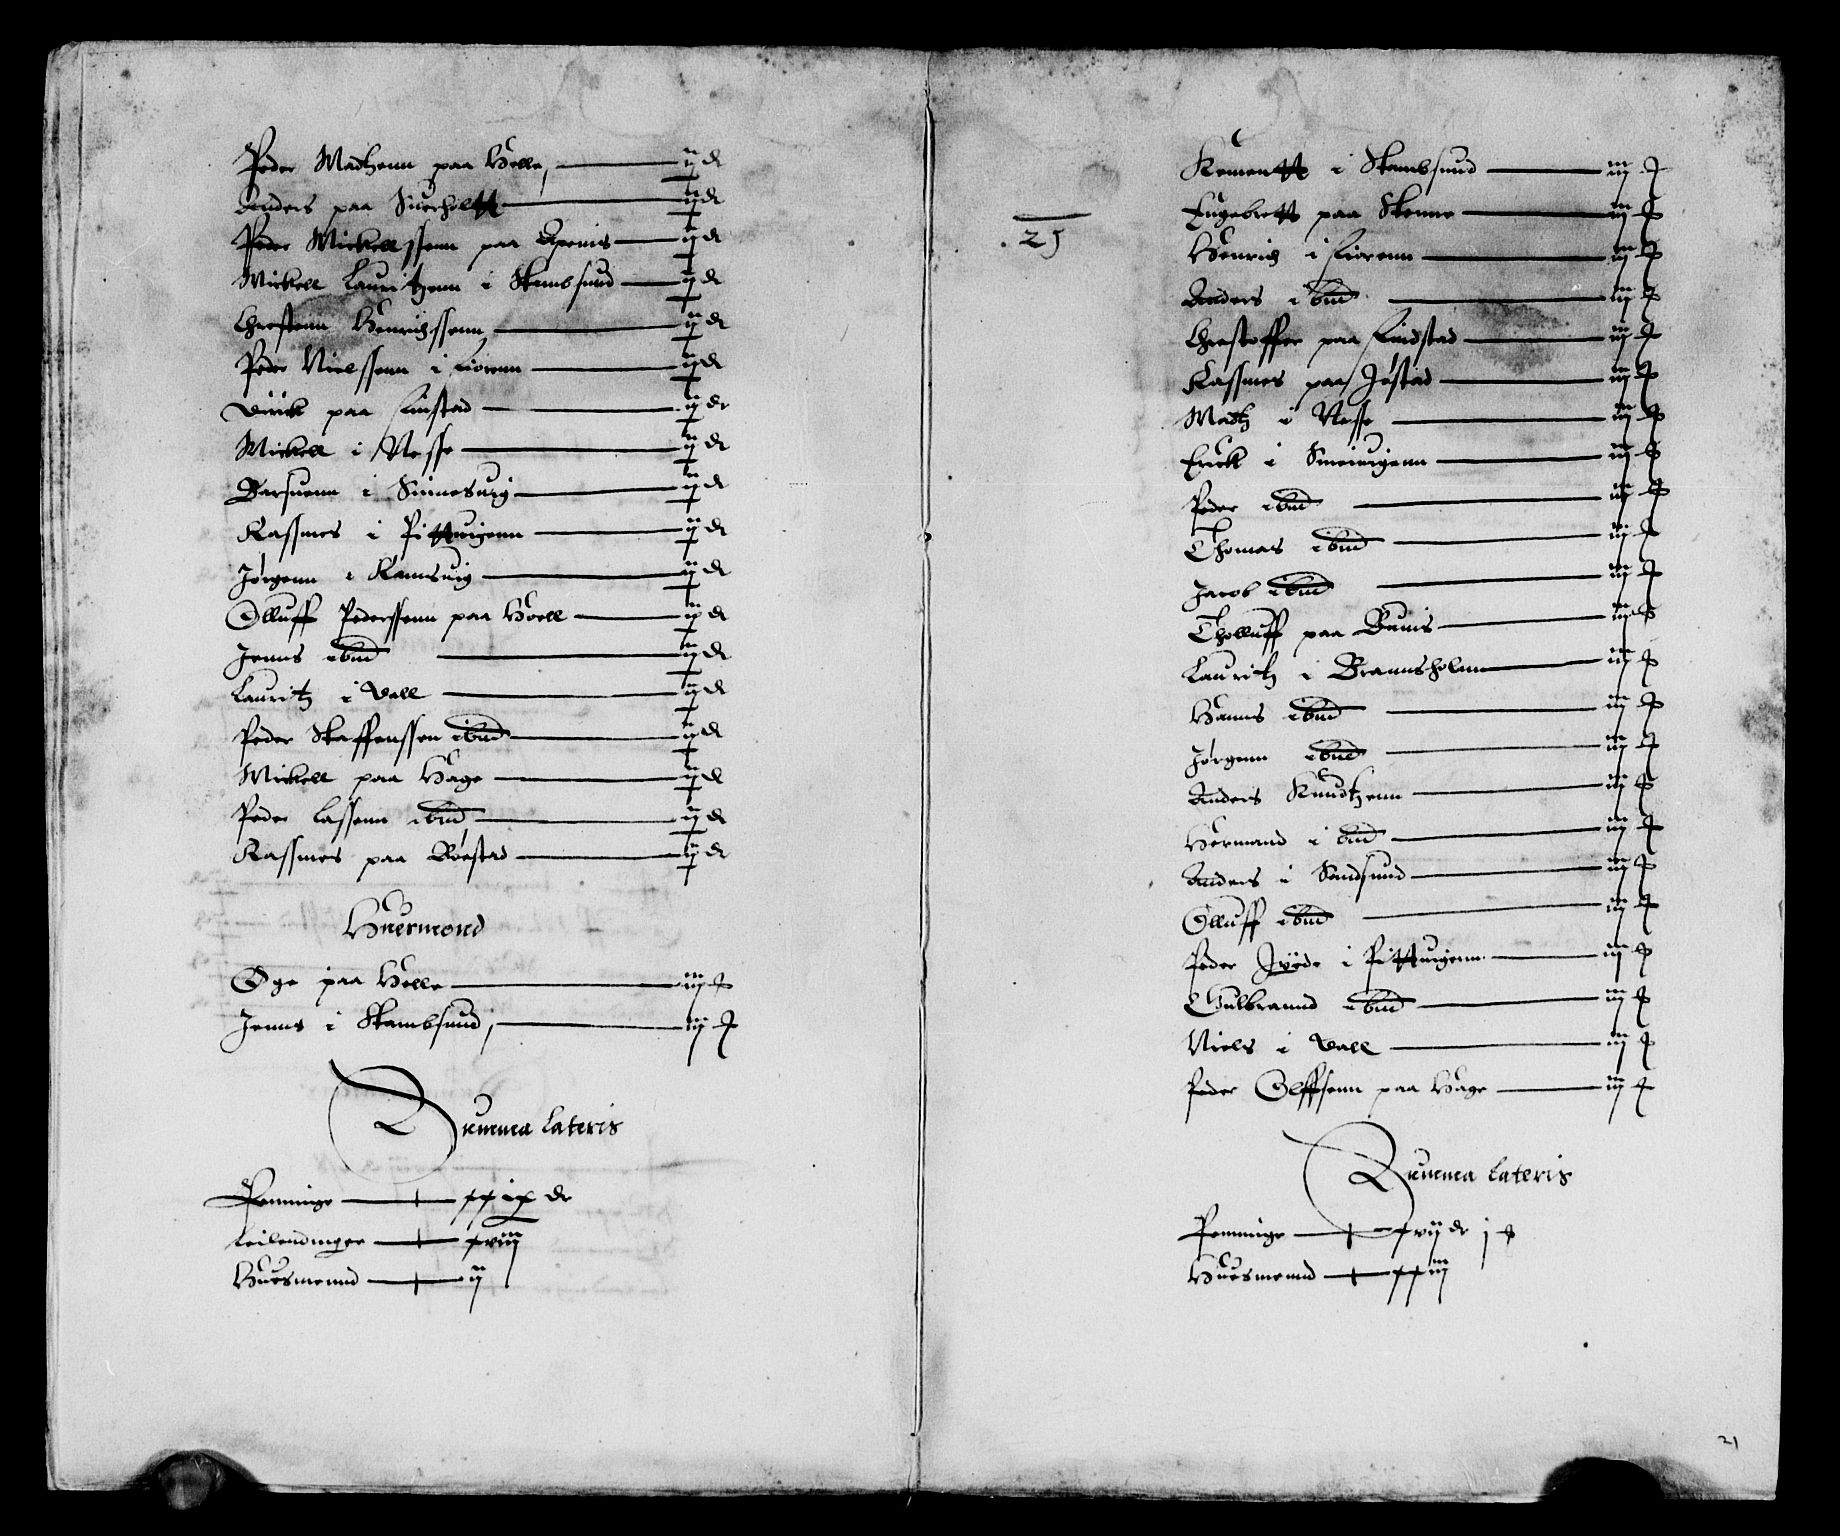 Peder Madtzenn paa Helle, ij dr
Anders paa Suerholtt ij dr
Peder Mickellssenn paa Openis ij dr
Mickell Lauritzenn i Skambsund ij dr
Chrestenn Henrichssenn ij dr
Peder Nielssenn i Fiorenn ij dr
Dirick paa Finstad ij dr
Mickell i Nesse ij dr
Barsuenn i Finnesuig ij dr
Rassmes i Pittuigenn ij dr
Jørgenn i Ramsuig ij dr
Olluff Pederssenn paa Hoell ij dr
Jenns ibid ij dr
Lauritz i Vall ij dr
Peder Staffenssen ibid ij dr
Mickell paa Hage ij dr
Peder Lassenn ibid ij dr
Rassmes paa Røestad ij dr
Huesmend
Oge paa Helle iij ß
Jenns i Skambsund, iij ß
Summa Lateris
Penninge xxxix dr
Leilendinger xviij
Huesmennd ij
25
Klementt i Skambsund iij ß
Engebrett paa Skonne iij ß
Henrich i Fiorenn iij ß
Anders ibid iij ß
Chrestoffer paa Findstad iij ß
Rassmes paa Jøstad iij ß
Madtz i Nesse iij ß
Erick i Smeuigenn iij ß
Peder ibid iij ß
Thomas ibid iij ß
Jacob ibid iij ß
Tholluff paa Bunis iij ß
Lauritz i Brannsholm iij ß
Hanns ibid iij ß
Jørgenn ibid iij ß
Anders Knudtzenn iij ß
Hermand ibid iij ß
Anders i Sandsund iij ß
Olluff ibid iij ß
Peder Jyde i Pittuigenn iij ß
Gulbrannd ibid iij ß
Niels i Vall iij ß
Peder Olffsenn paa Hage iij ß
Summa Lateris
Penninge xvij dr j ß
Huesmennd xxiij
21